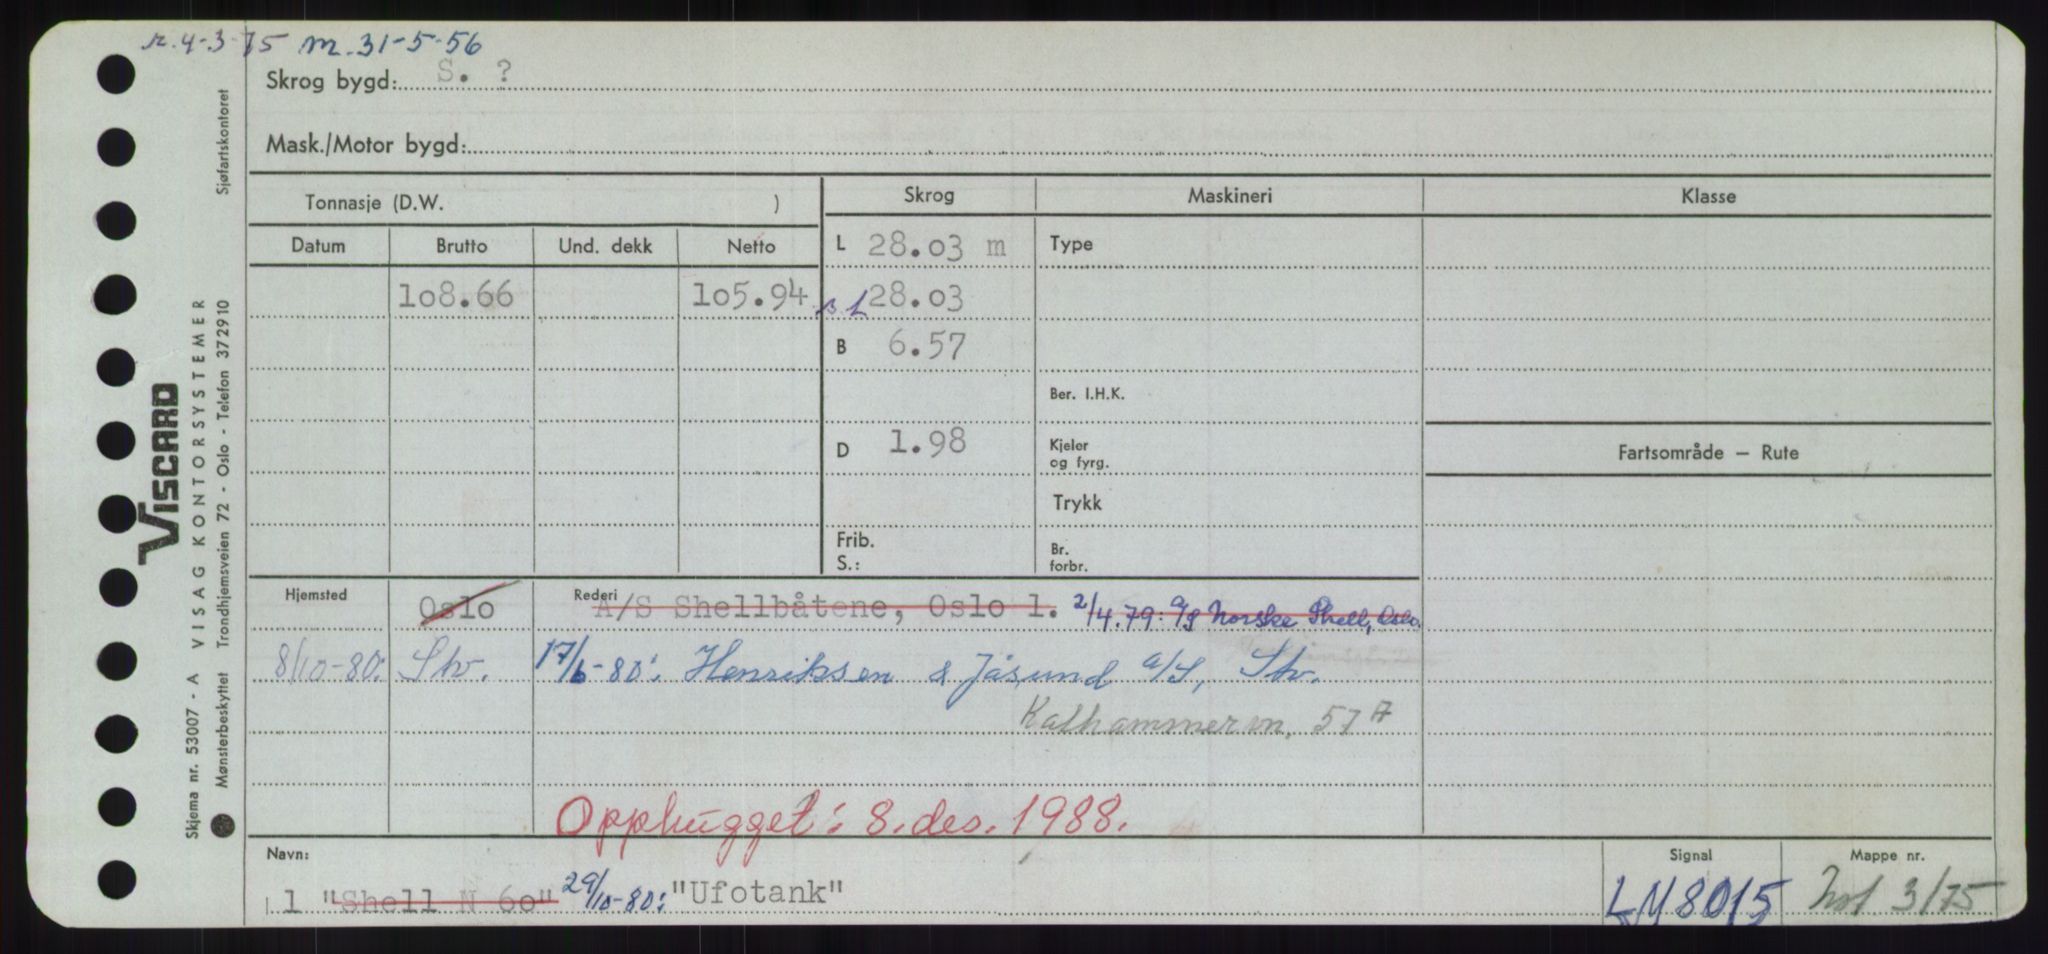 r. 4-3-75 m. 31-5-56
Skrog bygd: S. ?
Mask./Motor bygd:
Tonnasje (D.W. )
Skrog
Maskineri
Klasse
Datum
Brutto
Und. dekk
Netto
L 28.03 m
Type
108.66
105.94
28.03
B 6.57
Ber. I.H.K.
D 1.98
Kjeler
og fyrg.
Fartsområde — Rute
Trykk
Frib.
S.:
Br.
forbr.
Hjemsted
Oslo
Rederi
A/S Shellbåtene, Oslo 1. 2/4.79: A/S Norske Shell, Oslo.
8/10-80: Stv. 17/6-80: Henriksen & Jåsund A/S, Stv.
Kalhammervn. 57 A
Opphugget: 8. des. 1988.
Navn:
Signal
Mappe nr.
1 "Shell N 60" 29/10-80: "Ufotank"
LM8015
Not 3/75
Sjøfartskontoret
VISCARD
VISAG KONTORSYSTEMER
Trondhjemsveien 72 - Oslo - Telefon 372910
Skjema nr. 53007 - A
Mønsterbeskyttet